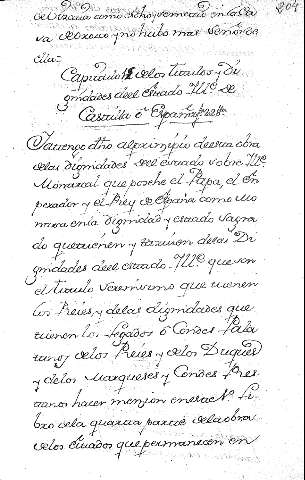 204
de Oracio como echo y one
va de oracio y no hubo mas Señor de
ella
Capitulo 15 de los titulos y Di
gnidades de el estado Illº. de
Castilla ó España
Ya tengo dho al principio de esta obra
de las dignidades del estado sobre Illº
Monarcal que posehe el Papa, el Em
perador y el Rey de España como mo
narca en la dignidad y estado sagra
do que tienen y tambien de las Di
gnidades de el estado Illº. que son
el titulo serenisimo que tienen
los Reies, y de las dignidades que
tienen los Legados ó Condes Pala
tinos de los Reies y de los Duques
y de los Marqueses y Condes Res
tanos hacer mencion en este Nº. Li
bro de la quarta parte de la obra
de los estados que permanecen en